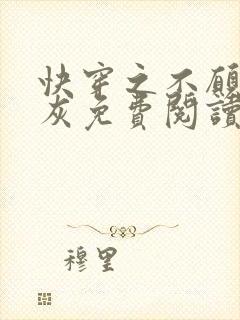 快穿之不願
灰免費閱讀
穆里